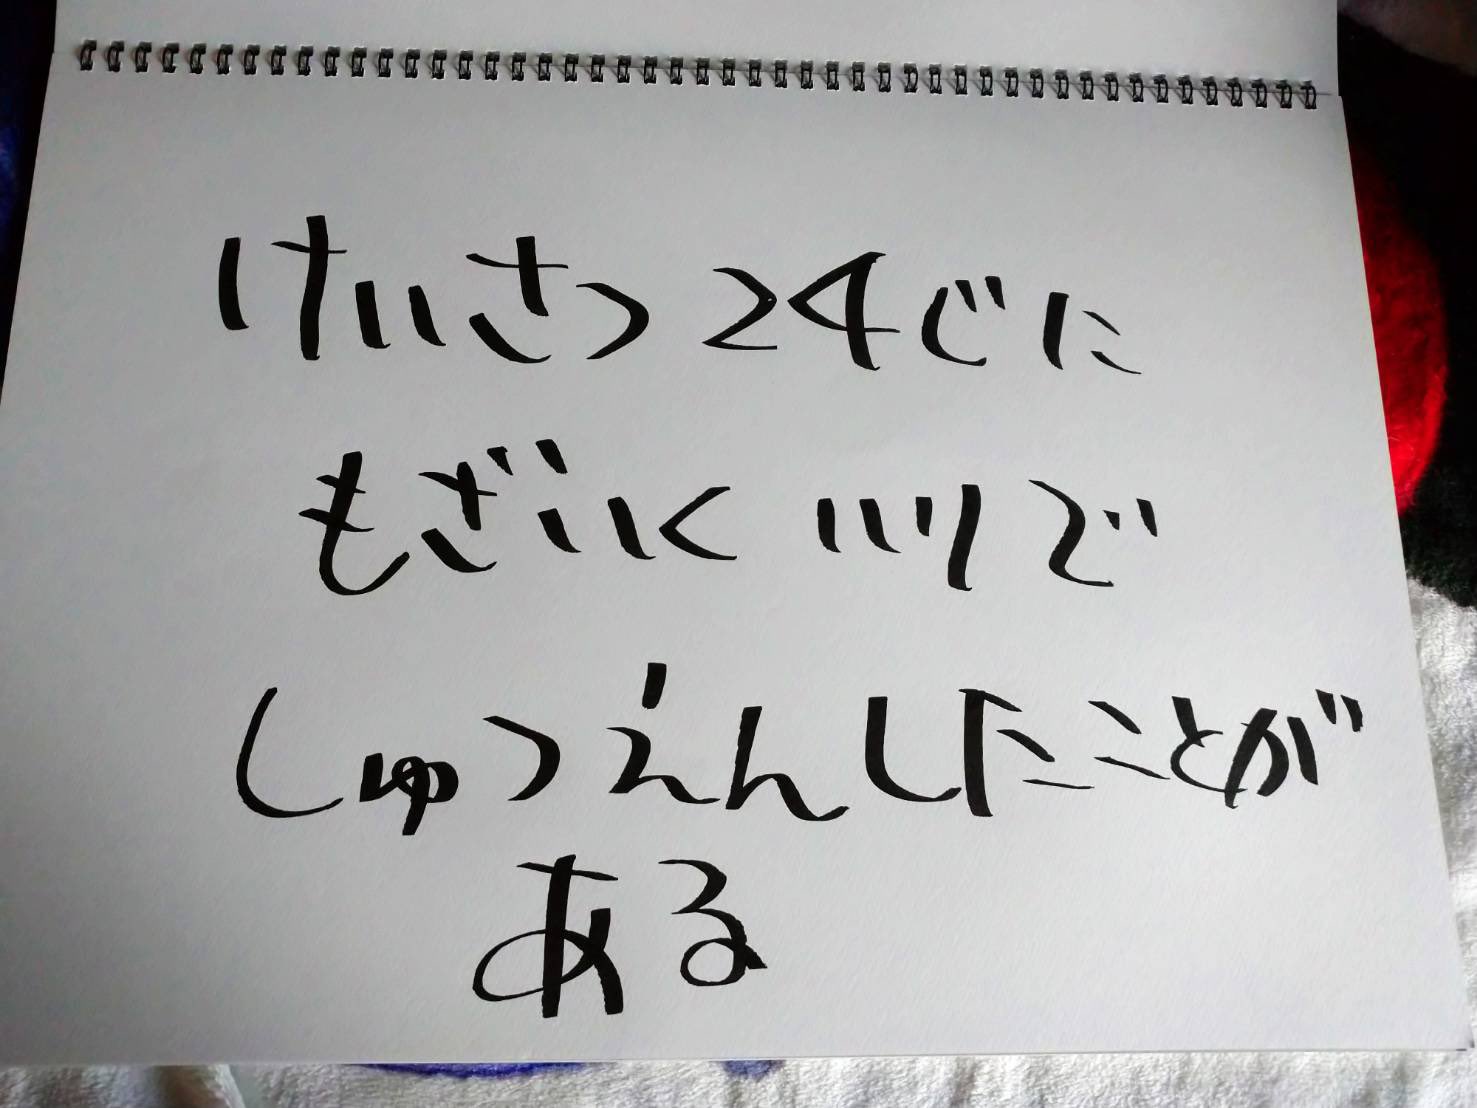 けいさつ24じに
もざいくいりで
しゅつえんしたことが
ある